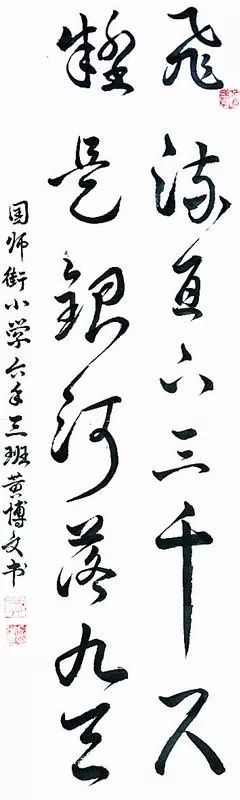 飞流直下三千尺
疑是银河落九天
国师街小学六年三班黄博文书